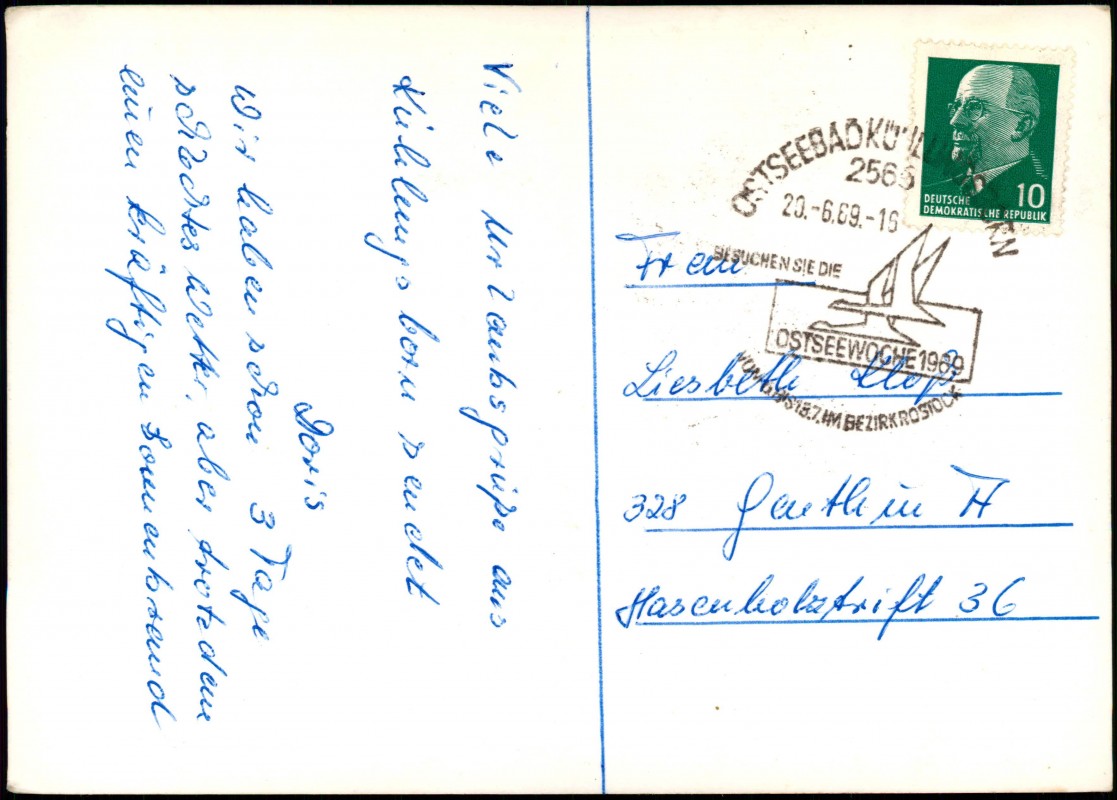 Viele Urlaubsgrüße aus
Kühlungsborn sendet
Doris
Wir haben schon 3 Tage
schlechtes Wetter, aber trotzdem
einen kräftigen Sonnenbrand
10
DEUTSCHE
DEMOKRATISCHE REPUBLIK
OSTSEEBAD KÜHLUNGSBORN
2565
20.-6.69.-16
BESUCHEN SIE DIE
OSTSEEWOCHE 1969
BIS 13.7. IM BEZIRK ROSTOCK
Frau
Liesbeth
328 Genthin A
Hasenholztrift 36